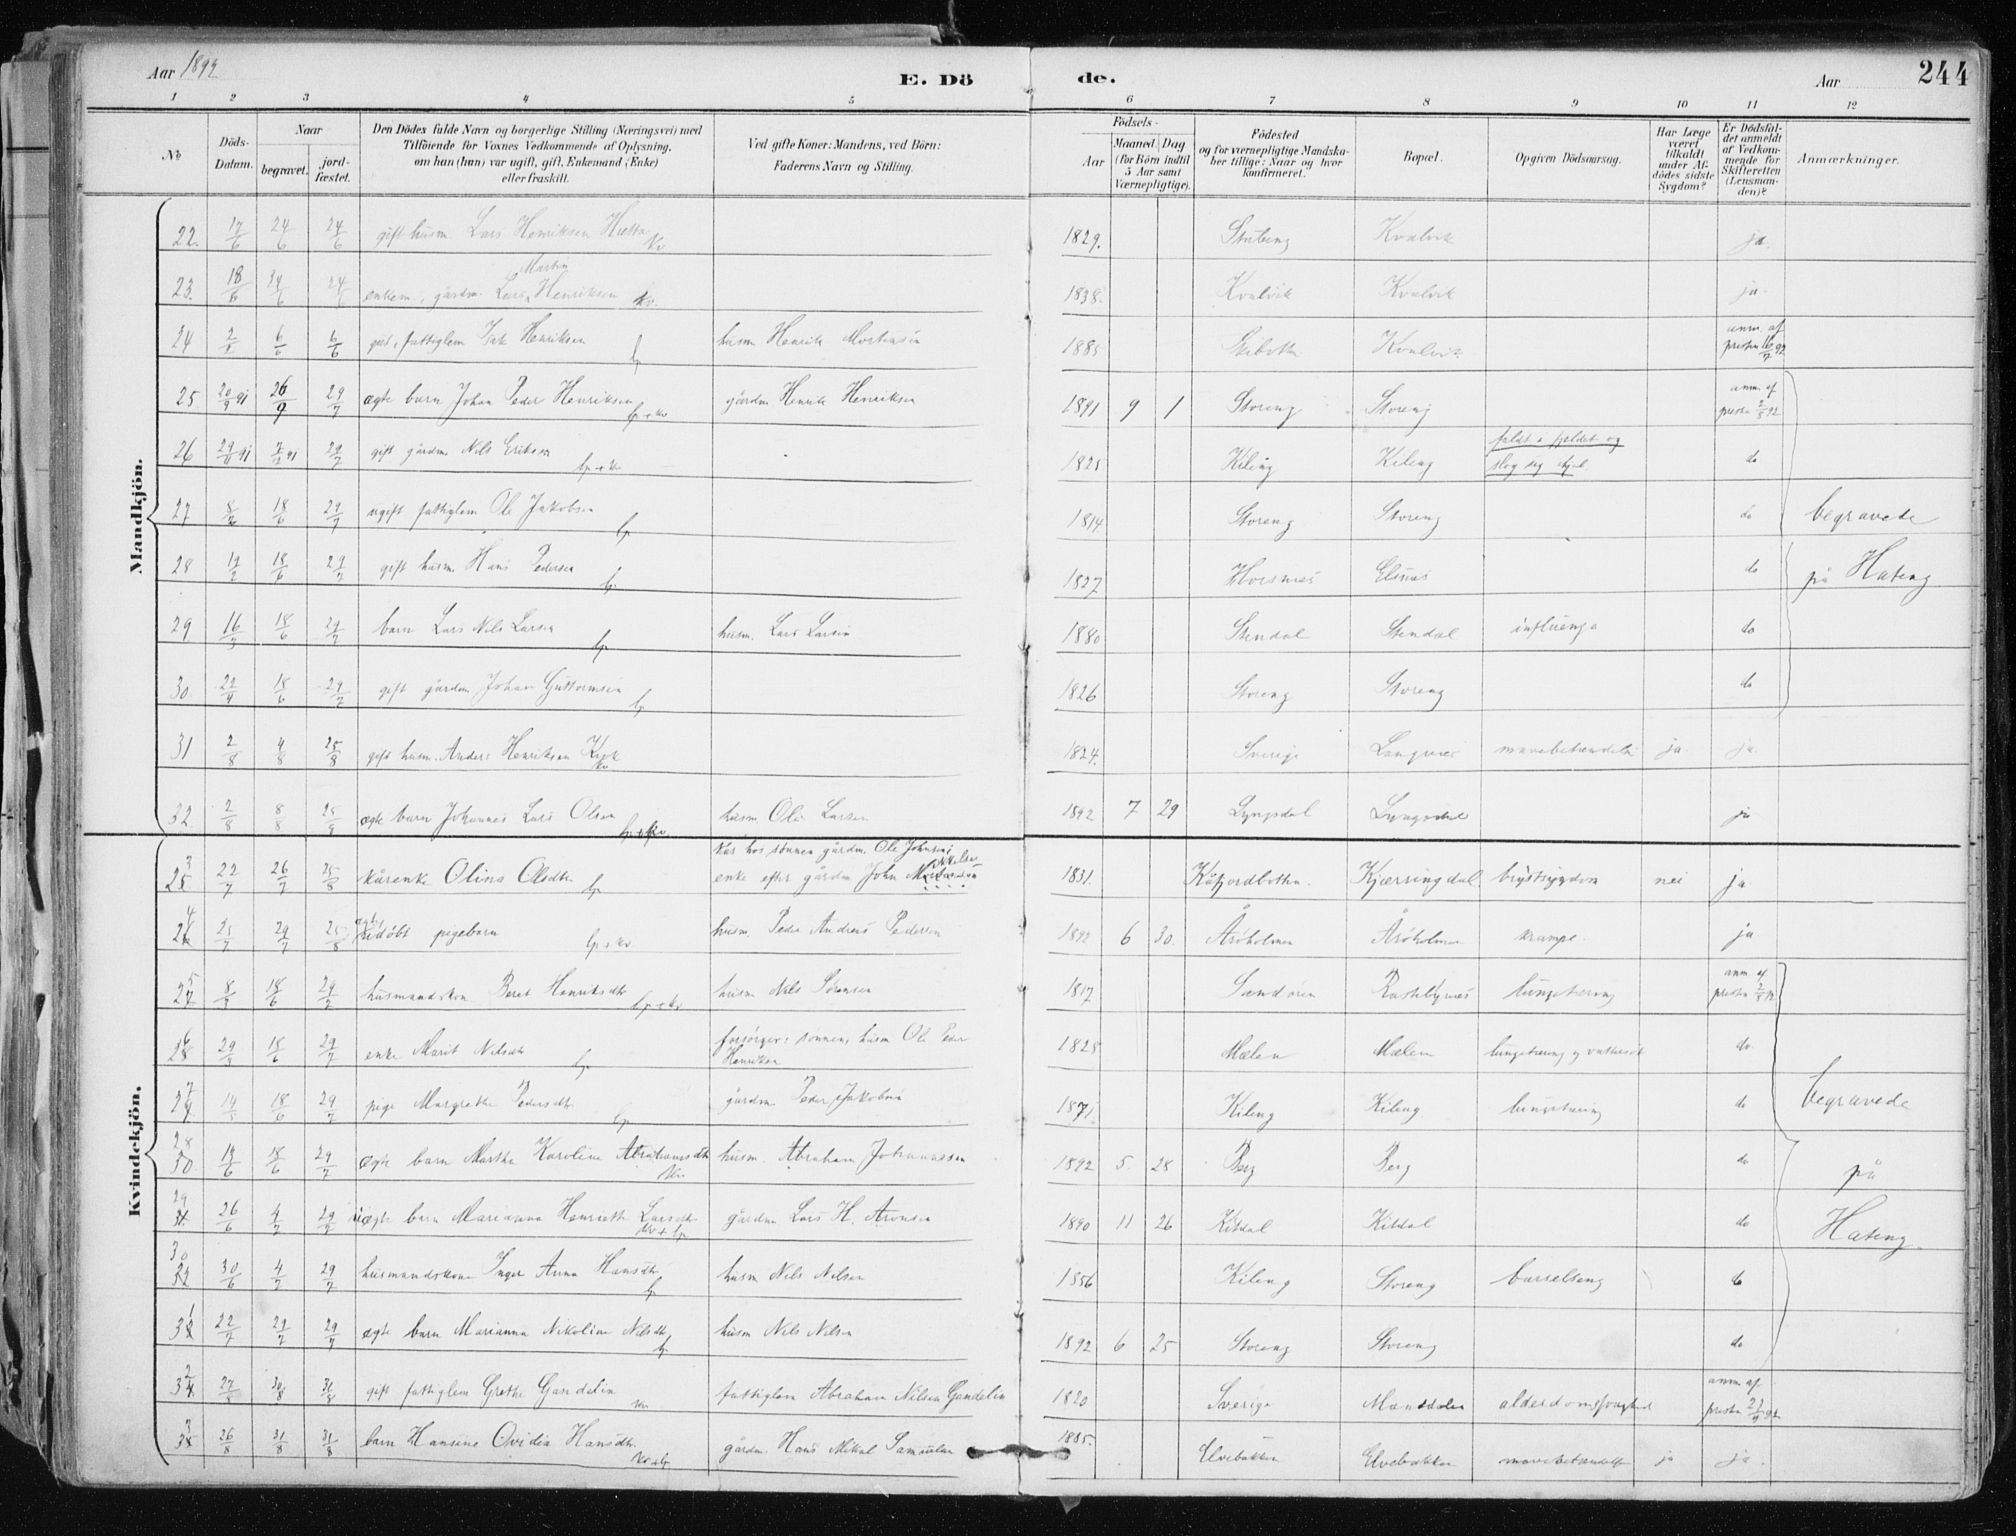 Aar 1892
E. Dö de.
Aar
244
1 2 3 4 5 6 7 8 9 10 11 12
№
Döds-Datum.
Naar
begravet.
jordfæstet.
Den Dödes fulde Navn og borgerlige Stilling (Næringsvei) med
Tilföiende for Voxnes Vedkommende af Oplysning,
om han (hun) var ugift, gift, Enkemand (Enke)
eller fraskilt.
Ved gifte Koner: Mandens, ved Börn:
Faderens Navn og Stilling.
Födsels-
Aar
Maaned. Dag
(for Börn indtil
5 Aar samt
Værnepligtige).
Födested
og for værnepligtige Mandskaber tillige: Naar og hvor
konfirmeret.
Bopæl.
Opgiven Dödsaarsag.
Har Læge
været
tilkaldt
under Afdödes sidste
Sygdom?
Er Dödsfaldet anmeldt
af Vedkommende for
Skifteretten
(Lensmanden)?
Anmærkninger.
Mandkjön.
22. 17/6 24/6 24/6 gift husm. Lars Henriksen Kv 1829. Kvalvik ja.
23. 18/6 24/6 24/6 enkem., gårdm. Lars Martin Henriksen Kv. 1838. Kvalvik Kvalvik ja.
24 6/6 6/6 fattiglem Isak Henriksen lp husm Henrik Mortensen 1885 Skibotten Kvalvik anm. af presten 92
25. 20/9 91 26/9 29/7 ægte barn Johan Peder Henriksen lp+kv gårdm Henrik Henriksen 1891 9 1 Storeng Storeng anm. af presten 2/8 92
26 91 91 29/7 gift gårdm Nils Eriksen lp+kv 1825 Kileng Kileng faldt i fjeldet og slog sig ihjel do
27 18/6 29/7 ugift fattiglem Ole Jakobsen lp 1814 Storeng Storeng do begravede
28 18/6 29/7 gift husm. Hans Pedersen lp 1827 Horsnes Elsnes do på Hateng
29 16/3 18/6 29/7 barn Lars Nils Larsen lp husm. Lars Larsen 1880 Stendal Stendal influenza do
30 22/4 18/6 29/7 gift gårdm Johan Guttormsen lp 1826 Storeng Storeng do
31 2/8 25/8 gift husm. Anders Henriksen kv 1824. Sverige Langnes mavebetændelse ja. ja.
32. 2/8 8/8 ægte barn Johannes Lars Olsen lp+kv husm. Ole Larsen 1892 7 29 Lyngsdal Lyngsdal ja
Kvindekjön.
23 22/7 26/7 25/8 kårenke Olina Olsdtr lp kår hos sønnen gårdm. Ole Johnsen; enke efter gårdm John 1831. Kåfjordbotten. Kjærringdal brystsygdom nei ja.
24 29/7 25/8 udöbt pigebarn lp+kv husm. Peder Andreas Pedersen 1892 6 30. Åröholmen Åröholmen krampe. ja
25 18/6 29/7 husmandskone Beret Henriksdtr lp+kv husm Nils Sörensen 1817 Sandören Rastebynes lungetæring anm af presten 2/8 92
26 29/3 18/6 29/7 enke Marit Nilsdtr lp forsörger: sønnen, husm Ole Peder Henriksen 1828 Mælen Mælen lungetæring og vattersot do
27 18/6 29/7 pige Margrethe Pedersdtr lp gårdm Peder Jakobsen 1871. Kileng Kileng lungetæring do begravede
28 18/6 29/7 ægte barn Martha Karoline Abrahamsdtr kv husm. Abraham Johannessen 1892 5. 28 Berg Berg do på
29 26/6 4/7 29/7 uægte barn Marianna Henriette Larsdtr kv+lp gårdm Lars H. Aronsen 1890 11 26 Kitdal Kitdal do Hateng.
30 30/6 4/7 29/7 husmandskone Inger Anna Hansdtr lp husm Nils Nilsen 1856 Kileng Storeng barselseng do
31 22/7 29/7 29/7 ægte barn Marianna Nikoline Nilsdtr lp husm Nils Nilsen 1892 6 25 Storeng Storeng do
32 30/8 31/8 gift fattiglem Grethe Gandelin kv fattiglem Abraham Nilsen Gandelin 1820 Sverige Manddalen alderdomssvaghed anm af presten 92
33 26/8 31/8 31/8 barn Hansine Ovidia Hansdtr. kv+lp gårdm. Hans Mikal Samuelsen 1885. Elvebakken Elvebakken mavebetændelse ja ja.